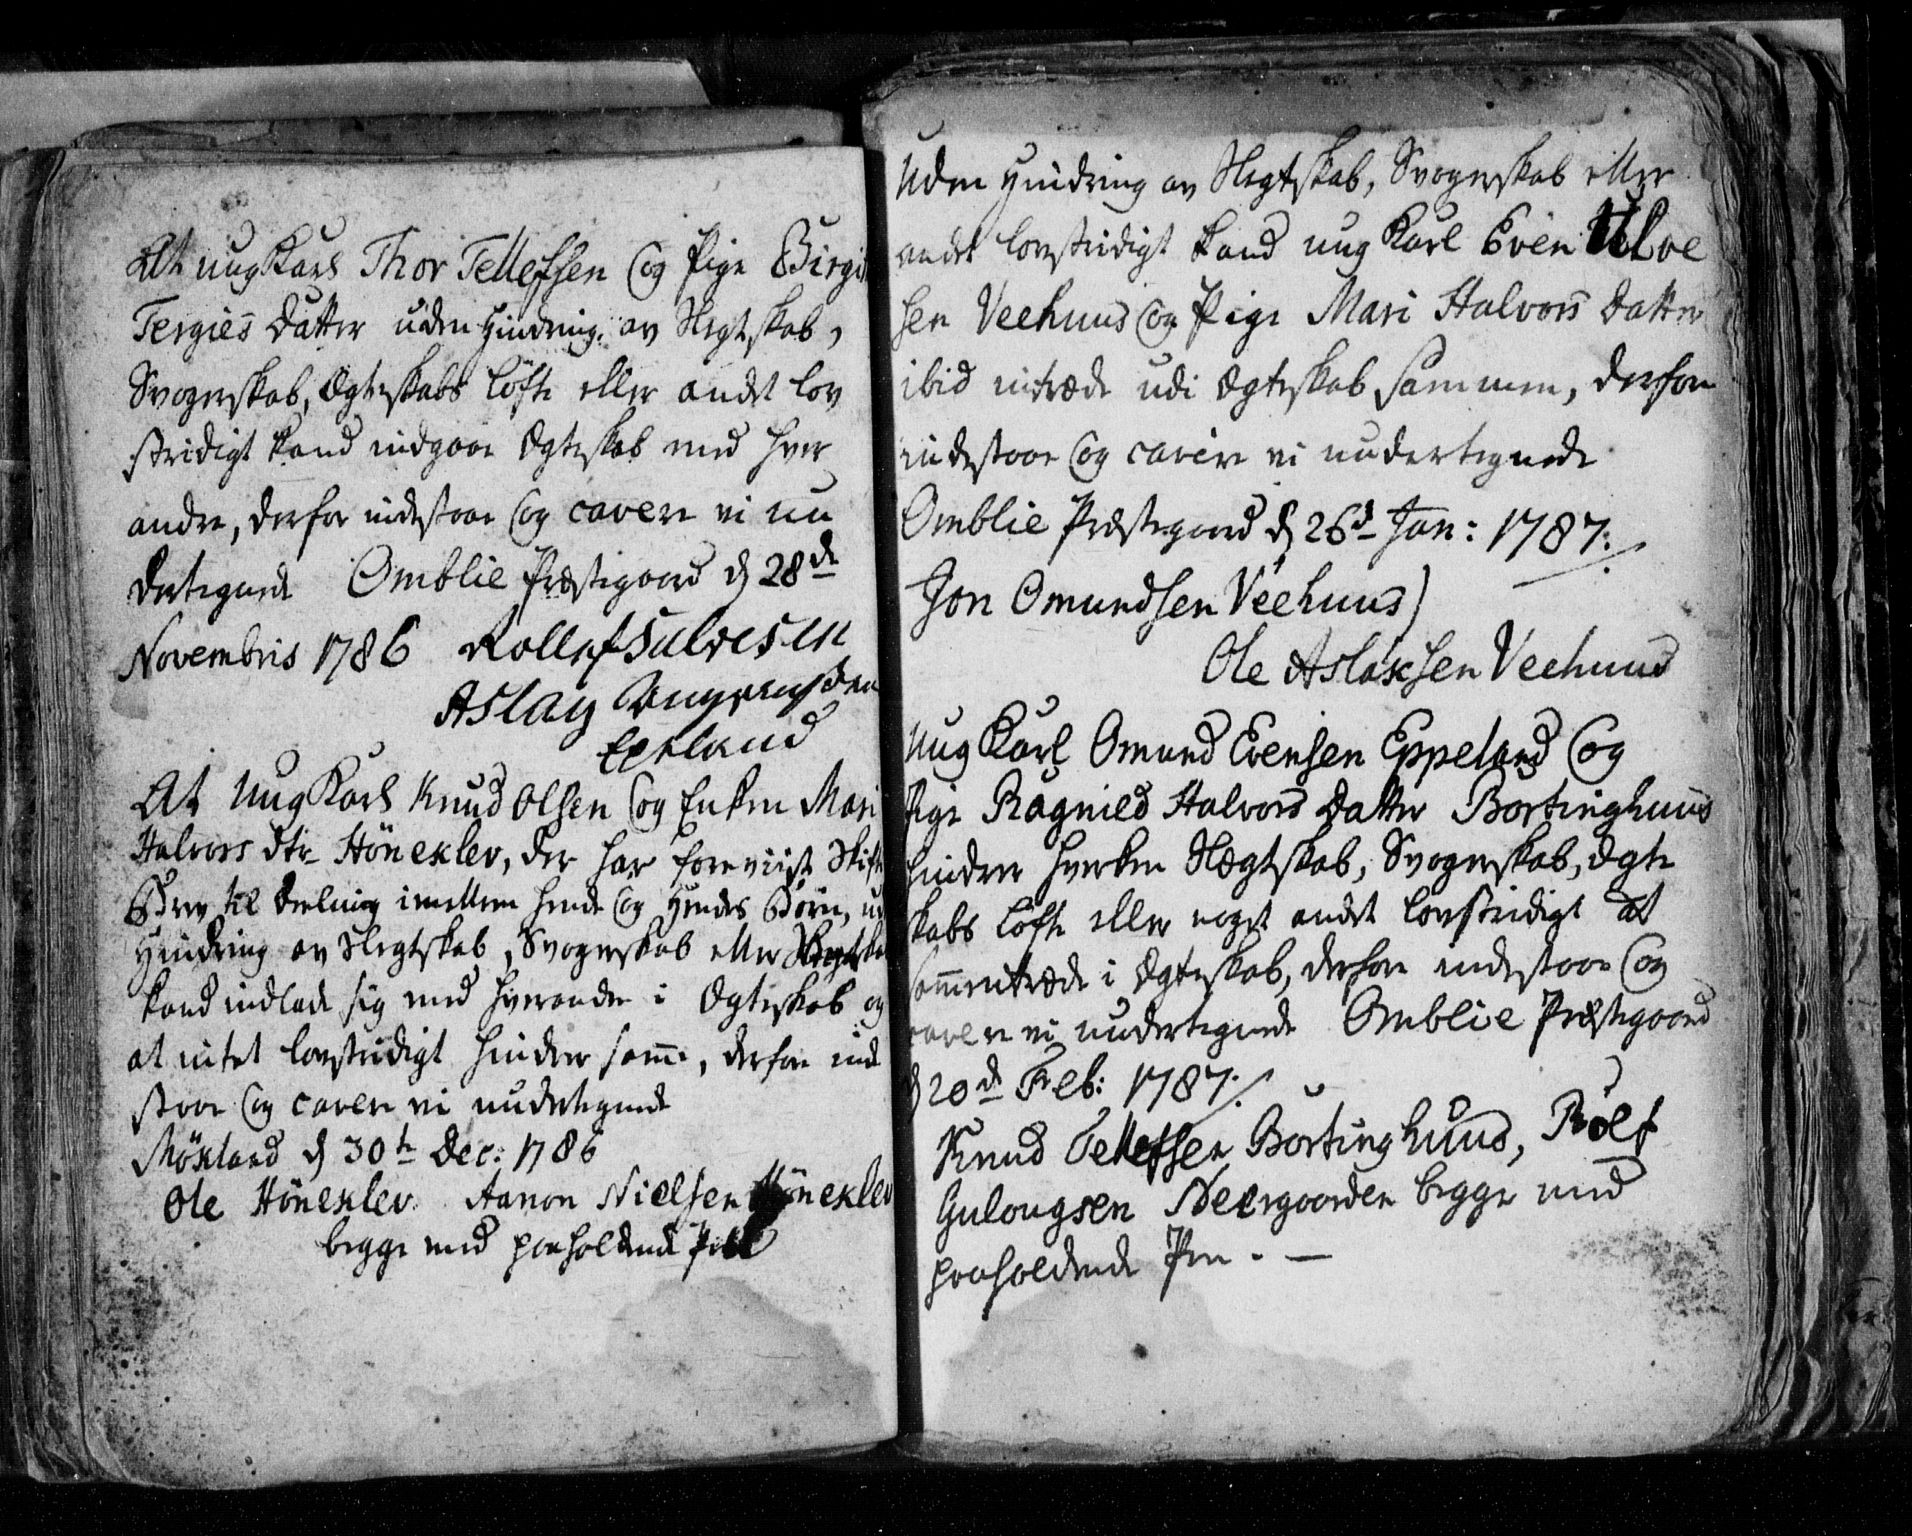 At ung Karl Thor Tellefsen og Pige Birgit
Tergies Datter uden Hindring av Slegtskab,
Svogerskab, Ægteskabs Löfte eller andet lov
stridigt kand indgaae Ægteskab med hver
andre, derfor indestaae og cavere vi un
dertegnede Omblie Præstegaard d 28de
Novembris 1786 Rollef Salvesen
Aslag
Epeland
At Ung Karl Knud Olsen og Enken Mari
Halvors dtr Hönexlev, der har foreviist Skifte
Brev til Deelning imellem hende og Hendes Börn, uden
Hindring av Slegtskab, Svogerskab eller
kand indlade sig med hverandre i Ægteskab og
at intet lovstridigt hindrer samme, derfore inde
staae og cavere vi undertegnede
Möxland d 30te Dec: 1786
Ole Hönexlev. Aanon Nielsen Hönexlev
begge med paaholdende Pen
Uden Hindring av Slegtskab, Svogerskab eller
andet lovstridigt kand ung Karl Even Ulve
sen Veehuus og Pige Mari Halvors Datter
ibid intræde udi Ægteskab sammen, derfore
indestaae og cavere vi undertegnede
Omblie Præstegaard d 26d Jan: 1787.
Jon Omundsen Veehuus
Ole Aslaksen Veehuus
Ung Karl Omund Evensen Eppeland og
Pige Ragnild Halvors Datter Bortinghuus
hindrer hverken Slægtskab, Svogerskab, Ægte
skabs Löfte eller noget andet lovstridigt at
sammentræde i Ægteskab, derfore indestaae og
cavere vi undertegnede Omblie Præstegaard
d 20de Feb: 1787.
Knud Tellefsen Bortinghuus, Rolf
Gulougsen Neergaarden begge med
paaholdende Pen. —